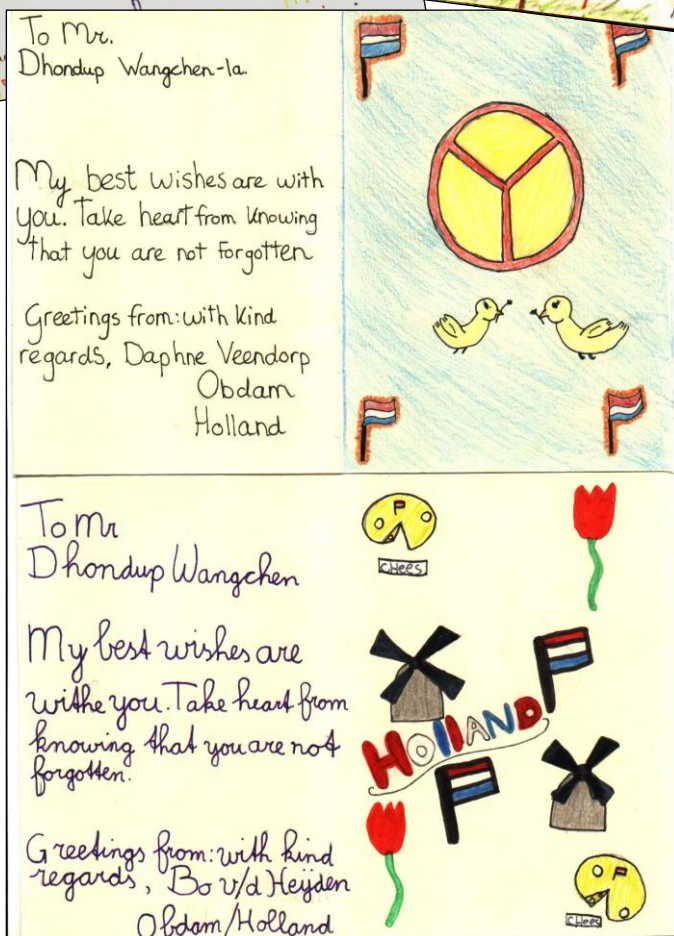 To Mr.
Dhondup Wangchen-la.
My best wishes are with
you. Take heart from knowing
that you are not forgotten
Greetings from: with kind
regards, Daphne Veendorp
Obdam
Holland
To Mr
Dhondup Wangchen
My best wishes are
withe you. Take heart from
knowing that you are not
forgotten.
Greetings from: with kind
regards, Bo v/d Heijden
Obdam/Holland
CHees
HOLLAND
CHees